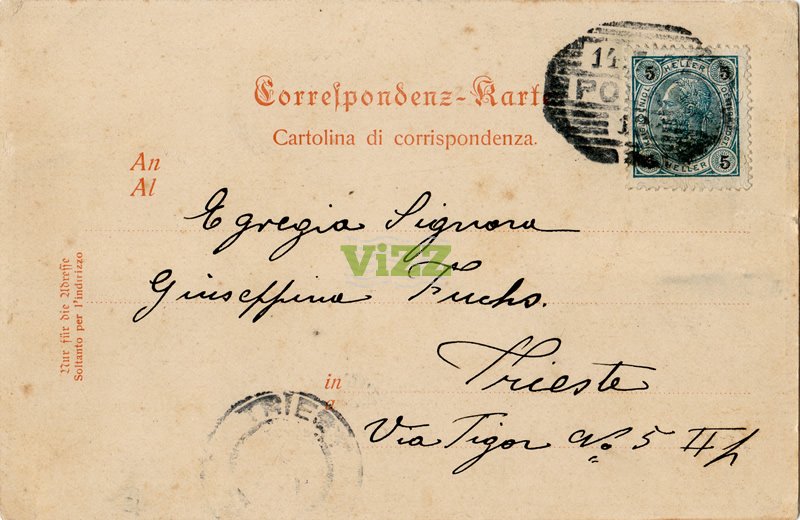 Correspondenz-Karte
Cartolina di corrispondenza.
14
PO
1
5 HELLER 5
5 HELLER 5
An
Al
Egregia Signora
ViZZ
Giuseppina Fuchs.
in
a
Trieste
TRIEST
Via Tigor No 5 II p
Nur für die Adresse
Soltanto per l'indirizzo